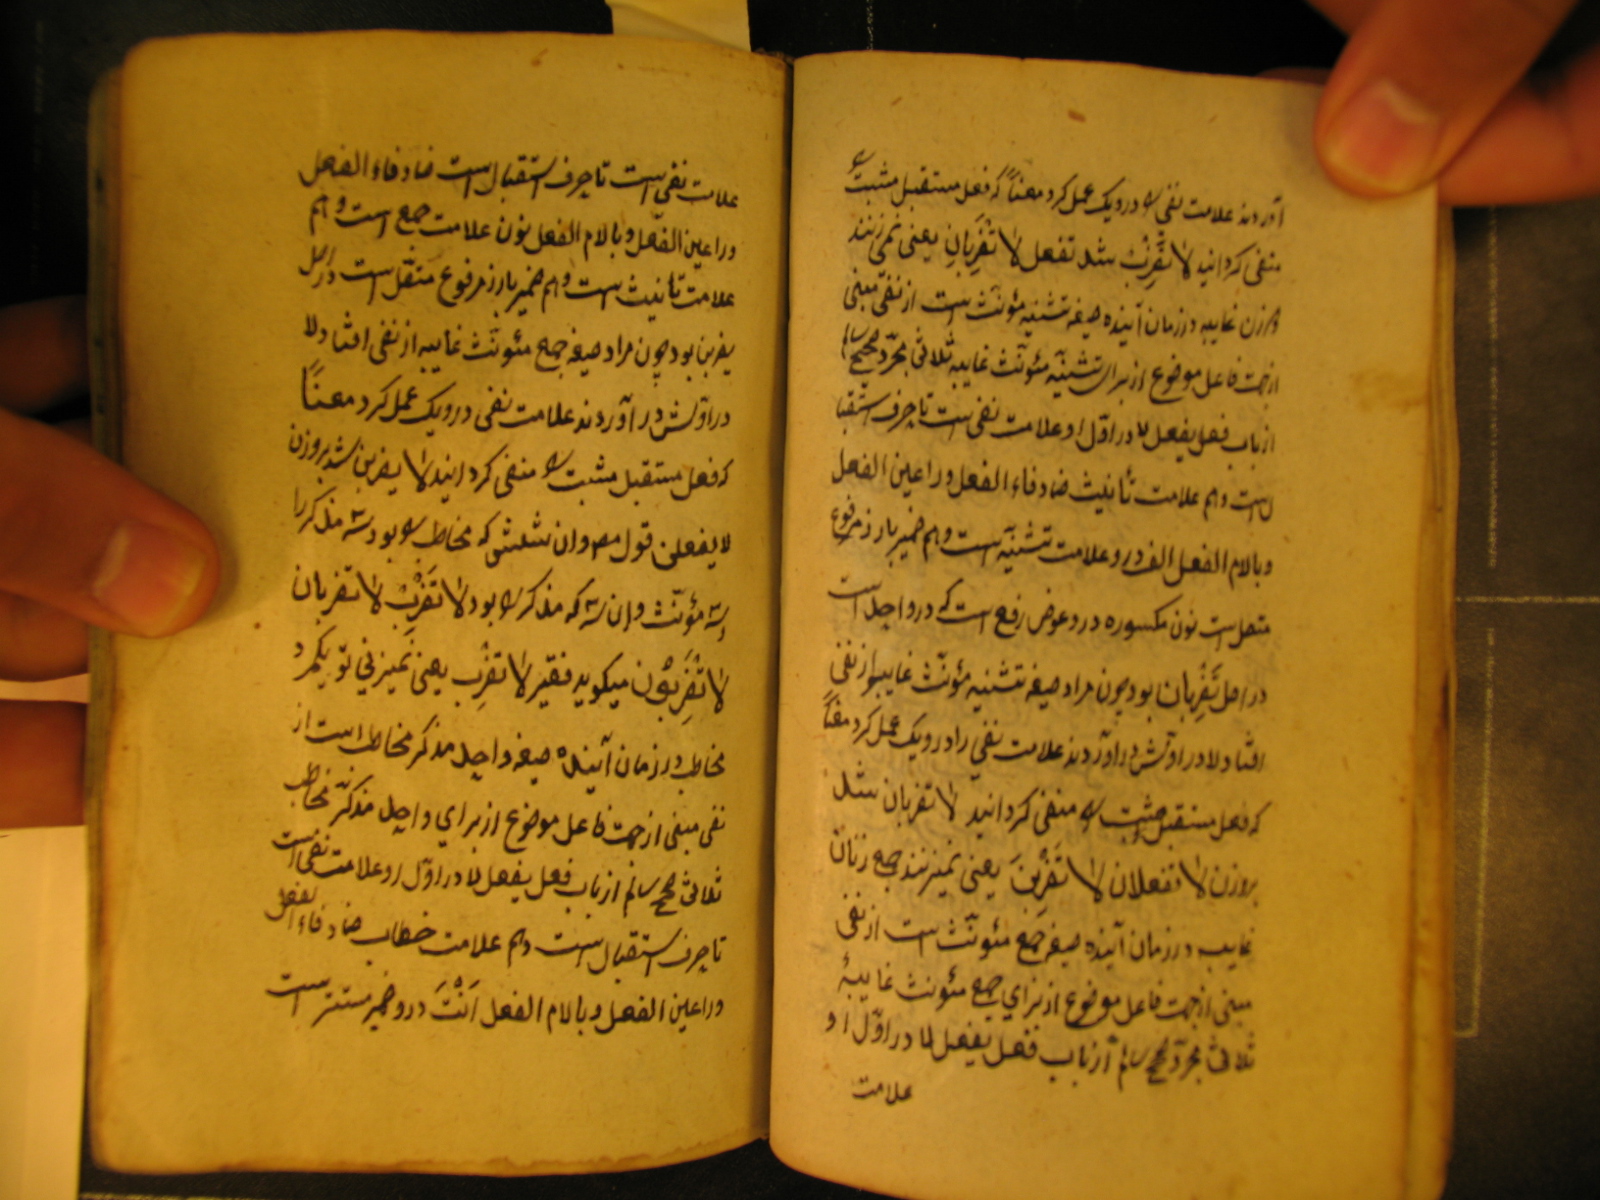 آوردند علامت نفی را درو یک عمل کرد معناً که فعل مستقبل مثبت را
منفی کردانید لا تَضْرِبْ شد تفعل لا تضربانِ یعنی نمی زنند
دو زن غایبه در زمان آینده صیغه تثنیه مؤنث است از نفی مبنی
از جهت فاعل موضوع از برای تثنیه مؤنث غایبه ثلاثی مجرّد صحیح سالم
از باب فعل یفعل لا در اوّل او علامت نفی است تا حرف استقبا
ل است و هم علامت تأنیث ضاد فاء الفعل و را عین الفعل
و با لام الفعل الف درو علامت تثنیه است و هم ضمیر بارز مرفوع
متصل است نون مکسوره درو عوض رفع است که در واحد است
در اصل تَضْرِبان بود چون مراد صیغه تثنیه مؤنث غایبه از نفی
افتاد لا در اوّلش در آوردند علامت نفی را درو یک عمل کرد معناً
که فعل مستقبل مثبت را منفی کردانید لا تضربان شد
بروزن لا تفعلان لا تَضْرِبْنَ یعنی نمیزنند جمع زنان
غایبه در زمان آینده صیغه جمع مئونث است از نفی
مبنی از جهت فاعل موضوع از برای جمع مئونث غایبهٔ
ثلاثی مجرّد صحیح سالم از باب فعل یفعل لا در اوّل او
علامت
علامت نفی است تا حرف استقبال است ضاد فاء الفعل
و را عین الفعل و با لام الفعل نون علامت جمع است و هم
علامت تأنیث است و هم ضمیر بارز مرفوع متصل است در اصل
یضربن بود چون مراد صیغه جمع مئونث غایبه از نفی افتاد لا
در اوّلش در آوردند علامت نفی درو یک عمل کرد معناً
که فعل مستقبل مثبت را منفی کردانید لا یضربن شد بروزن
لا یفعلن قول مص و ان ششش که مخاطب را بود سه مذکر را
و سه مؤنث و ان سه که مذکر را بود لا تَضْرِبْ لا تضربان
لا تَضْرِبُون میکوید فقیر لا تضرب یعنی نمیزنی تو یکمرد
مخاطب در زمان آینده صیغه واحد مذکر مخاطب است از
نفی مبنی از جهت فاعل موضوع از برای واحد مذکّر مخاطب
ثلاثی صحیح سالم از باب فعل یفعل لا در اوّل او علامت نفی است
تا حرف استقبال است و هم علامت خطاب ضاد فاء الفعل
و را عین الفعل و با لام الفعل اَنْتَ درو ضمیر مستتر است